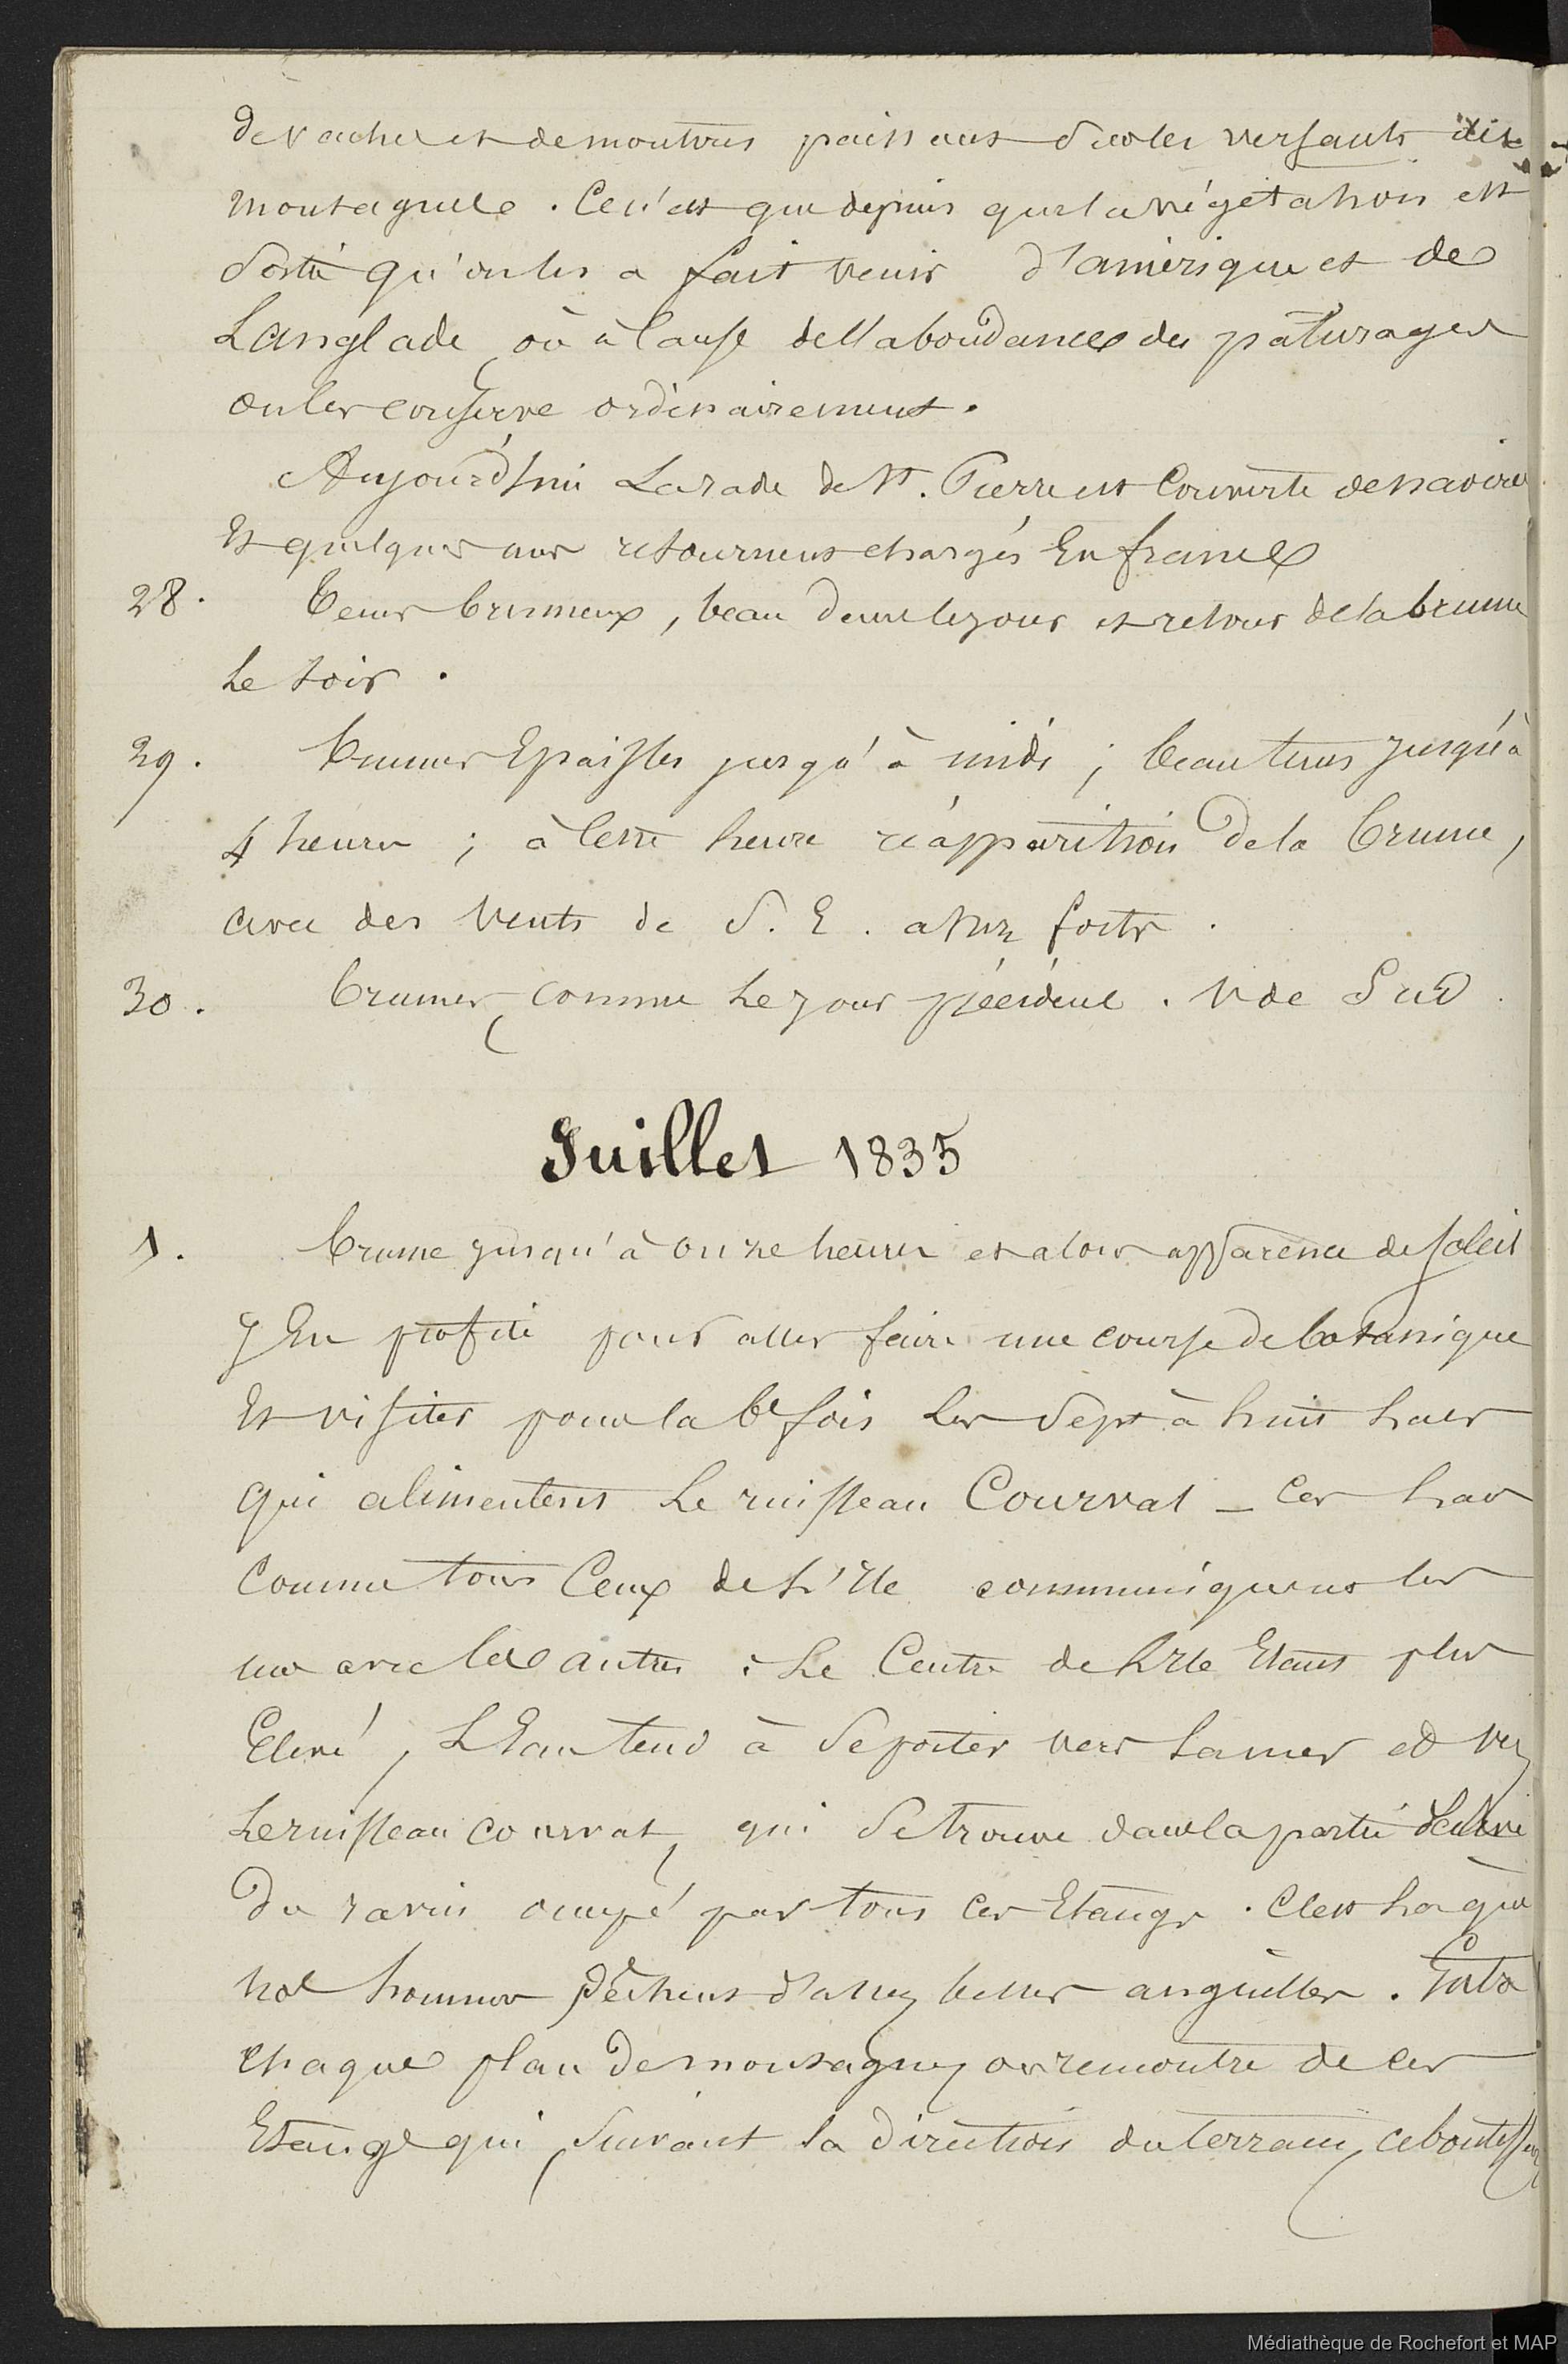 de vaches et de moutons paissant sur les versants des
montagnes. Ce n'est que depuis que la végétation est
sortie qu'on les a fait venir d'amérique et de
Langlade, où à cause de l'abondance des pâturages
on les conserve ordinairement.
Aujourd'hui La rade de St. Pierre est Couverte de navires
Et quelques uns retournent chargés En france
28. Tems brumeux, beau dans le jour et retour de la brume
Le soir.
29. brumes Epaisses jusqu'à midi ; beau tems jusqu'à
4 heures ; à Cette heure réapparition de la brume,
avec des vents de S. E. assez forts.
30. brumes, comme Le jour précédent. V de Sud.
Juillet 1835
1. brume jusqu'à onze heures et alors apparence de soleil
J'En profite pour aller faire une course de botanique
Et visiter pour la 6e fois Les Sept à huit lacs
qui alimentent Le ruisseau Courval _ Ces lacs
Comme tous Ceux de L'Ile communiquent les
uns avec les autres : Le Centre de L'Ile Etant plus
Elevé, L'Eau tend à Se porter vers La mer et vers
Le ruisseau courval, qui Se trouve dans la partie
du ravin occupé par tous Ces Etangs. C'est La que
nos hommes pêchent d'assez belles anguilles. Sur
chaque plan de montagnes on remontre de Ces
Etangs qui, Suivant la direction du terrain, aboutissent